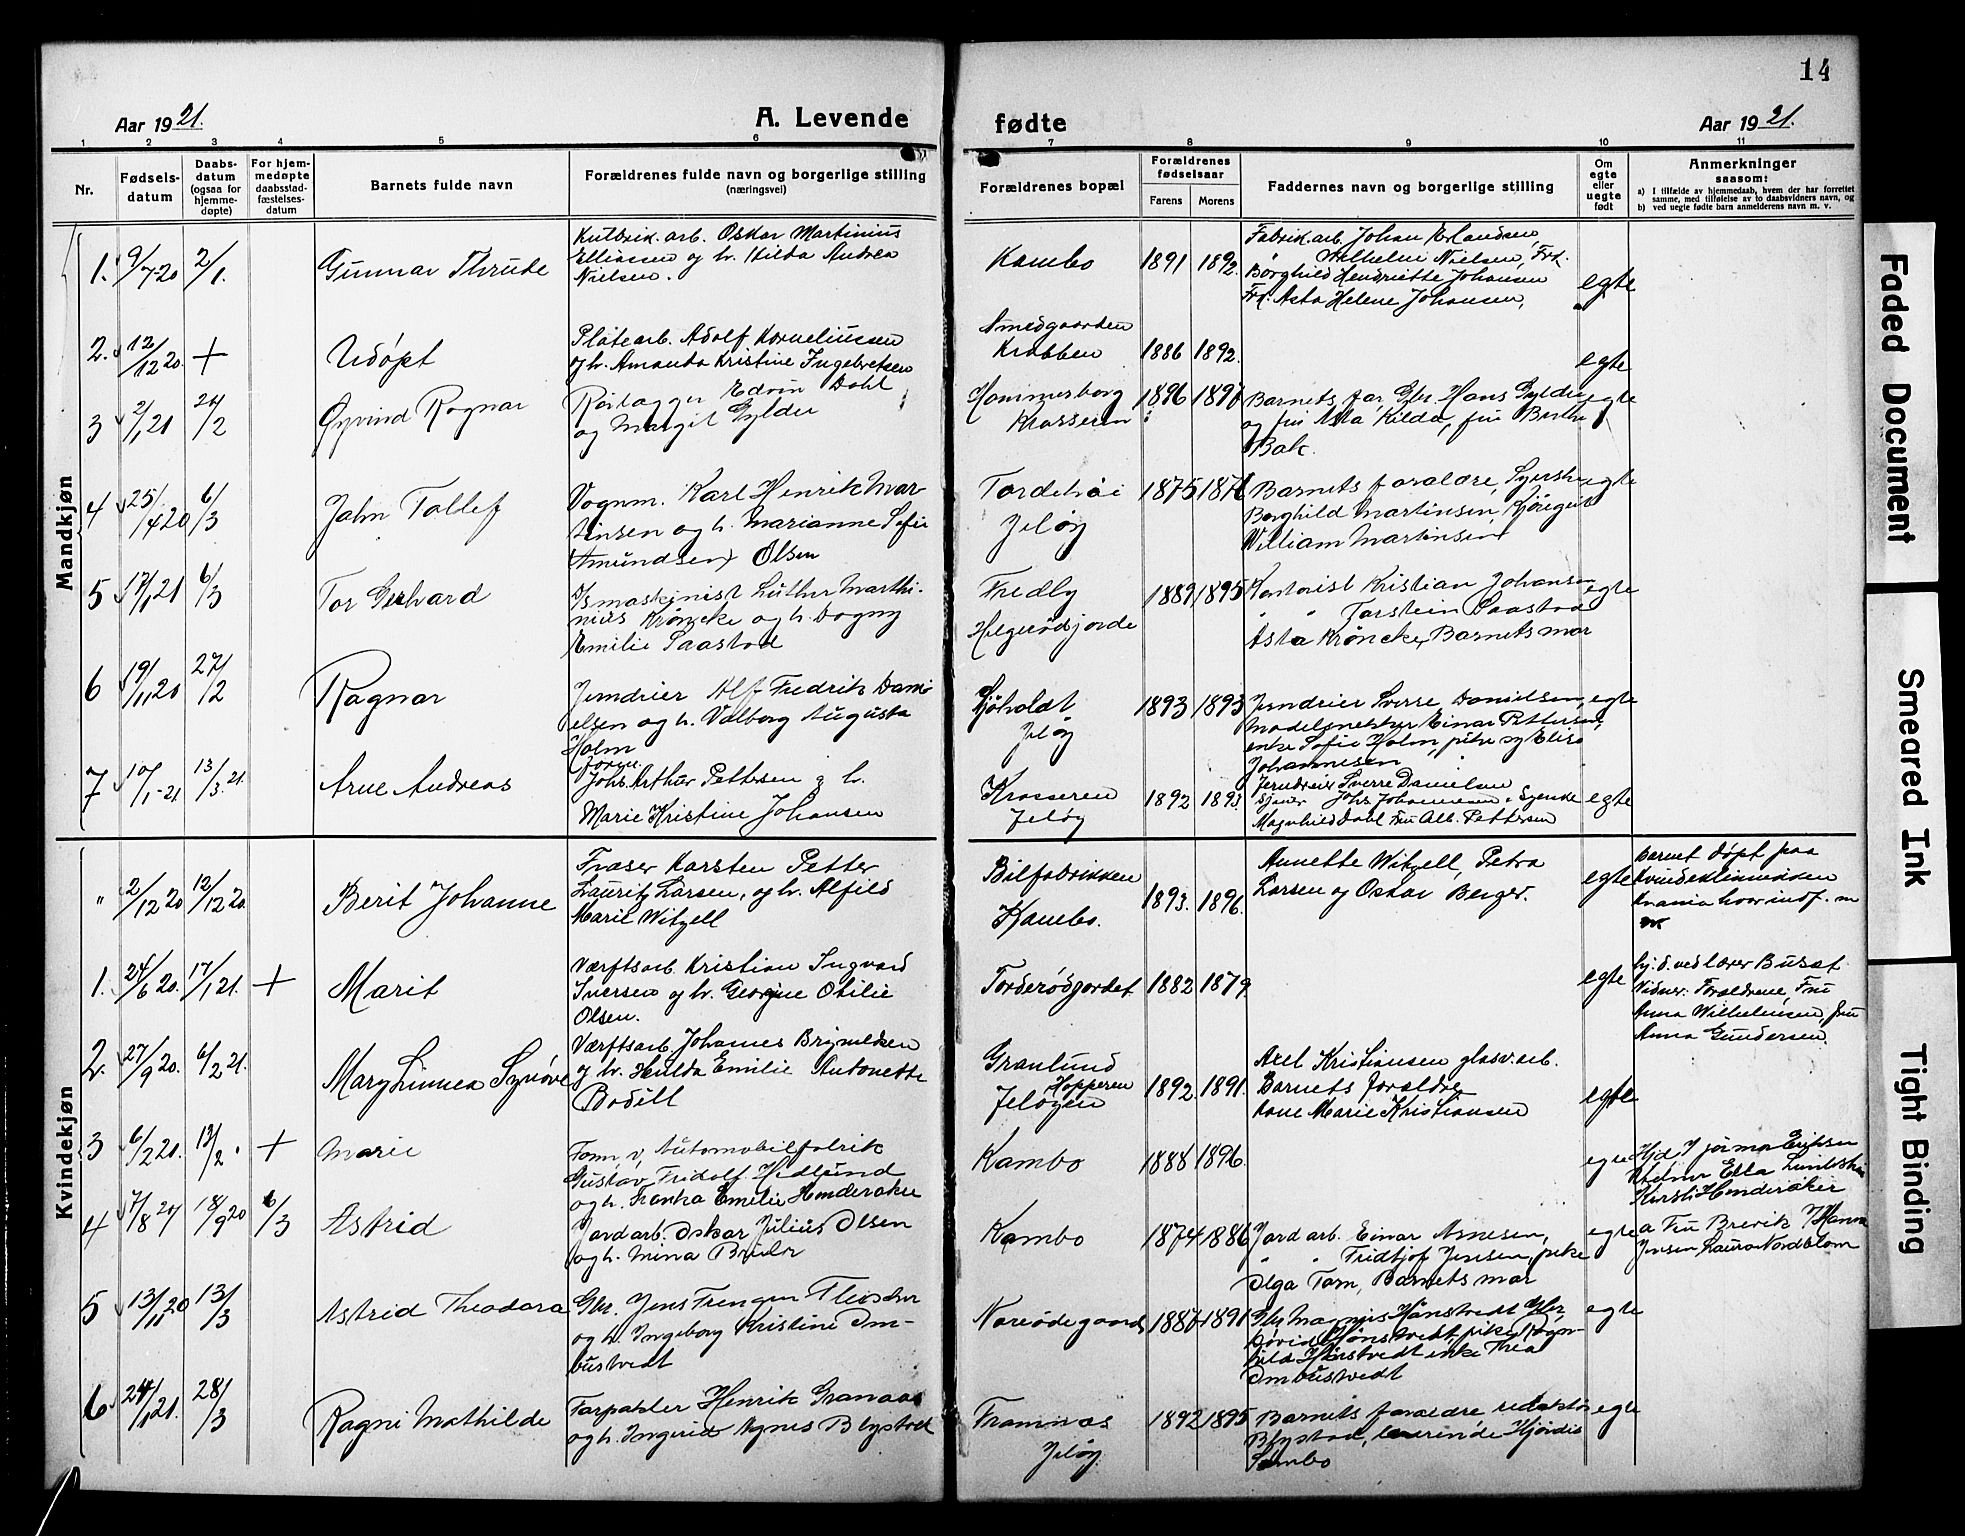 14
Aar 1921.
A. Levende
fødte
Aar 1921.
1 2 3 4 5 6 7 8 9 10 11
Nr.
Fødsels-
datum
Daabs-
datum
(ogsaa for
hjemme-
døpte)
For hjem-
medøpte
daabsstad-
fæstelses-
datum
Barnets fulde navn
Forældrenes fulde navn og borgerlige stilling
(næringsvei)
Forældrenes bopæl
Forældrenes
fødselsaar
Farens Morens
Faddernes navn og borgerlige stilling
Om
egte
eller
uegte
født
Anmerkninger
saasom:
a) I tilfælde av hjemmedaab, hvem der har forrettet
samme, med tilføielse av to daabsvidners navn, og
b) ved uegte fødte barn anmelderens navn m. v.
Mandkjøn
1. 9/7-20 2/1. Gunnar Thrude
arb. Oskar Martinius
Elliassen og h. Hilda Andrea
Nielsen.
Kambo 1891 1892.
Fabrik.arb. Johan Erlandsen,
" Wilhelm Nielsen, Frk.
Borghild Hendriette Johansen
Frk. Asta Helene Johansen,
egte
2. 12/12 20. + Udöpt
Platearb. Adolf Korneliussen
og h. Amanda Kristine Ingebretsen
Smedgaarden
Krabben 1886 1892. egte
3 2/1 21 24/2 Øyvind Ragnar
Rørlægger Edvin Dahl
og Margit Gylder
Hammerborg
Krosseren 1896
Barnets far, Gbr. Hans Gylder
og fru Asta Kilde, fru Berthe
Bak.
egte
4 25/4 20 6/3 John Tollef
Vognm. Karl Henrik Mar-
tinsen og h. Marianne Sofie
Amundsen Olsen
Jeløy 1875
Barnets foraldre,
Borghild Martinsen,
William Martinsen
egte
5 17/1 21 6/3 Tor Gerhard
Ismaskinist Luther Marthi-
nius Krøncke og h. Dagny
Emilie Saastad
Fredly
Helgerødjorde 1889 1895
Kontorist Kristian Johansen
" " Torstein Saastad
Asta Krøncke, Barnets mor
egte
6 19/11 20 27/2 Ragnar
Jerndreier Alf Fredrik Dani-
elsen og h. Valborg Augusta
Holm
Sjøholdt
Jeløy 1893 1893
Jerndreier Sverre Danielsen,
Modelsnekker Einar Pettersen,
enke Sofie Holm, pike Elise
Johannesen
egte
7 10/1-21 13/3.21. Arne Andreas
Johs. Arthur Pettersen g h.
Marie Kristine Johansen
Krosseren
Jeløy 1892 1893.
Jerndreier Sverre Danielsen
Johs. Johannesen.
Magnhild Dahl Fru Alb. Pettersen
egte
Kvindekjøn
" 2/12 20 12/12 20. Berit Johanne
Fraser Karsten Petter
Lauritz Larsen, og h. Alfild
Maril Witzell
Bilfabrikken
Kambo. 1893. 1896.
Annette Witzell, Petra
Larsen og Oskar Berger.
egte
barnet döpt paa
kvindeklinikken
Krania hvor indf.
1. 24/6 20. 17/1 21. + Marit
Værftsarb. Kristian Ingvard
Iversen og h. Georgine Otilie
Olsen.
Torderødjordet 1882 1879
egte
hj.d. ved lærer Buset.
Vidner: Forældrene, Fru
Anna Wilhelmsen, fru
Anna Gundersen.
2. 27/9 20. 6/2 21. Mary Linnea Synøve
Værftsarb. Johannes Brynildsen
og h. Hulda Emilie Antonette
Bodill
Granlund
Hopperen
Jeløyen 1892. 1891.
Axel Kristiansen glasv.arb.
Barnets forældre
Marie Kristiansen
egte
3 6/2 21. 13/2. + Marie
Form. v. Automobilfabrik
Gustav Fridolf Hedlund
og h. Emelie Henderaker
Kambo 1888 1896. egte
Hjd. Jjormor Eriksen
Ella
Kirsti Henderaker
4 7/8 20 18/9 20 6/3 Astrid
Jordarb. Oskar Julius Olsen
og h. Mina
Kambo 1874 1886
Jordarb. Einar Arnesen,
" " Fridtjof Jensen, pike
Olga Tom, Barnets mor
egte
a Fru Brevik Hanna
Jensen, Laura Nordblom
5 13/11 20 13/3 Astrid Theodora
Gbr. Jens
og h. Ingeborg Kristine Om-
bustvedt
1891
Gbr. Magnus Hønstvedt Gbr.
Hønstvedt, pike Ragn-
hild Hønstvedt enke Thea
Ombustvedt
egte
6. 24/1 21. 28/3 Ragni Mathilde
Farpakter Henrik Granaas
og h. Ingerid Agnes Blystad
Framnæs
Jeløy. 1892 1895
Barnets foraldre redaktør
Blystad, lærerinde Hjørdis
Sambo
egte
Faded Document
Smeared Ink
Tight Binding